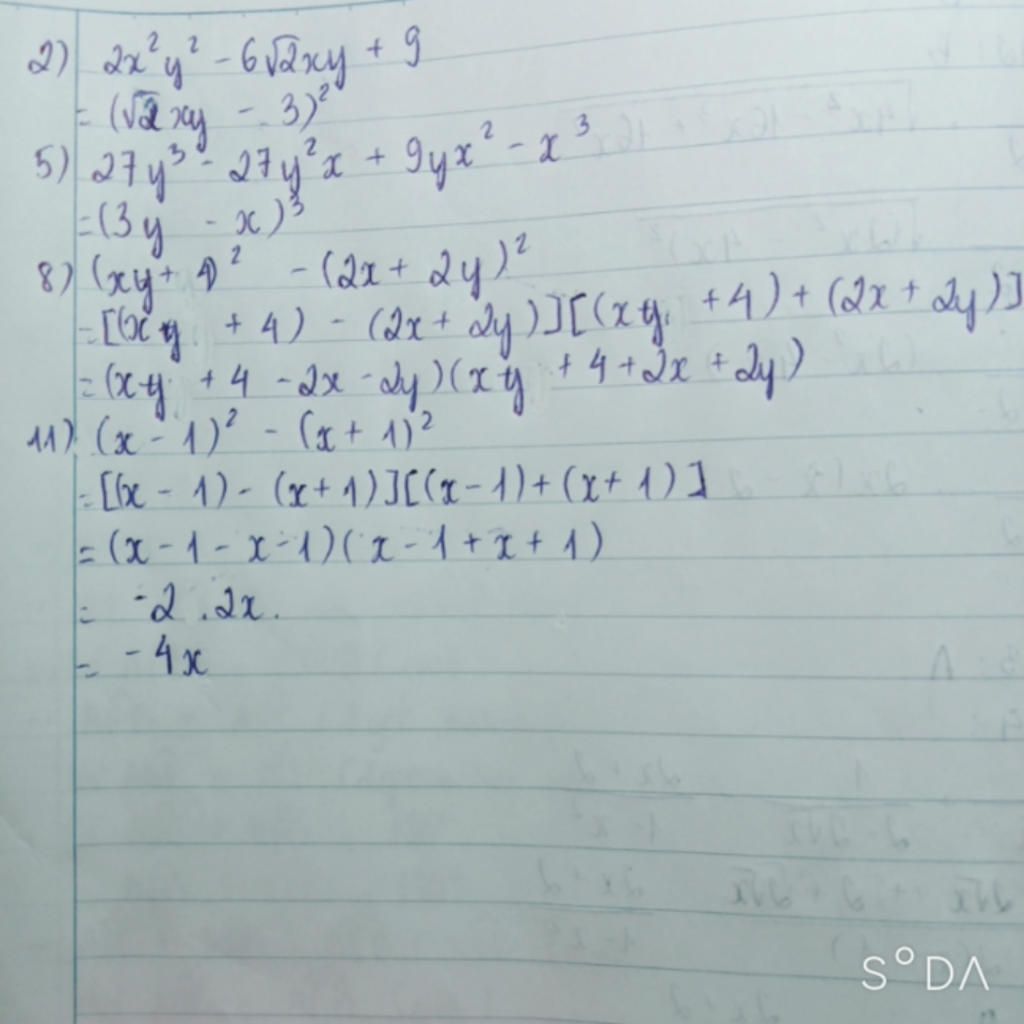 2) 2x²y² - 6√2xy + 9
= (√2xy - 3)²
5) 27y³ - 27y²x + 9yx² - x³
= (3y - x)³
8) (xy + 4)² - (2x + 2y)²
= [(xy + 4) - (2x + 2y)][(xy + 4) + (2x + 2y)]
= (xy + 4 - 2x - 2y)(xy + 4 + 2x + 2y)
11) (x - 1)² - (x + 1)²
= [(x - 1) - (x + 1)][(x - 1) + (x + 1)]
= (x - 1 - x - 1)(x - 1 + x + 1)
= -2 . 2x.
= -4x
SODA